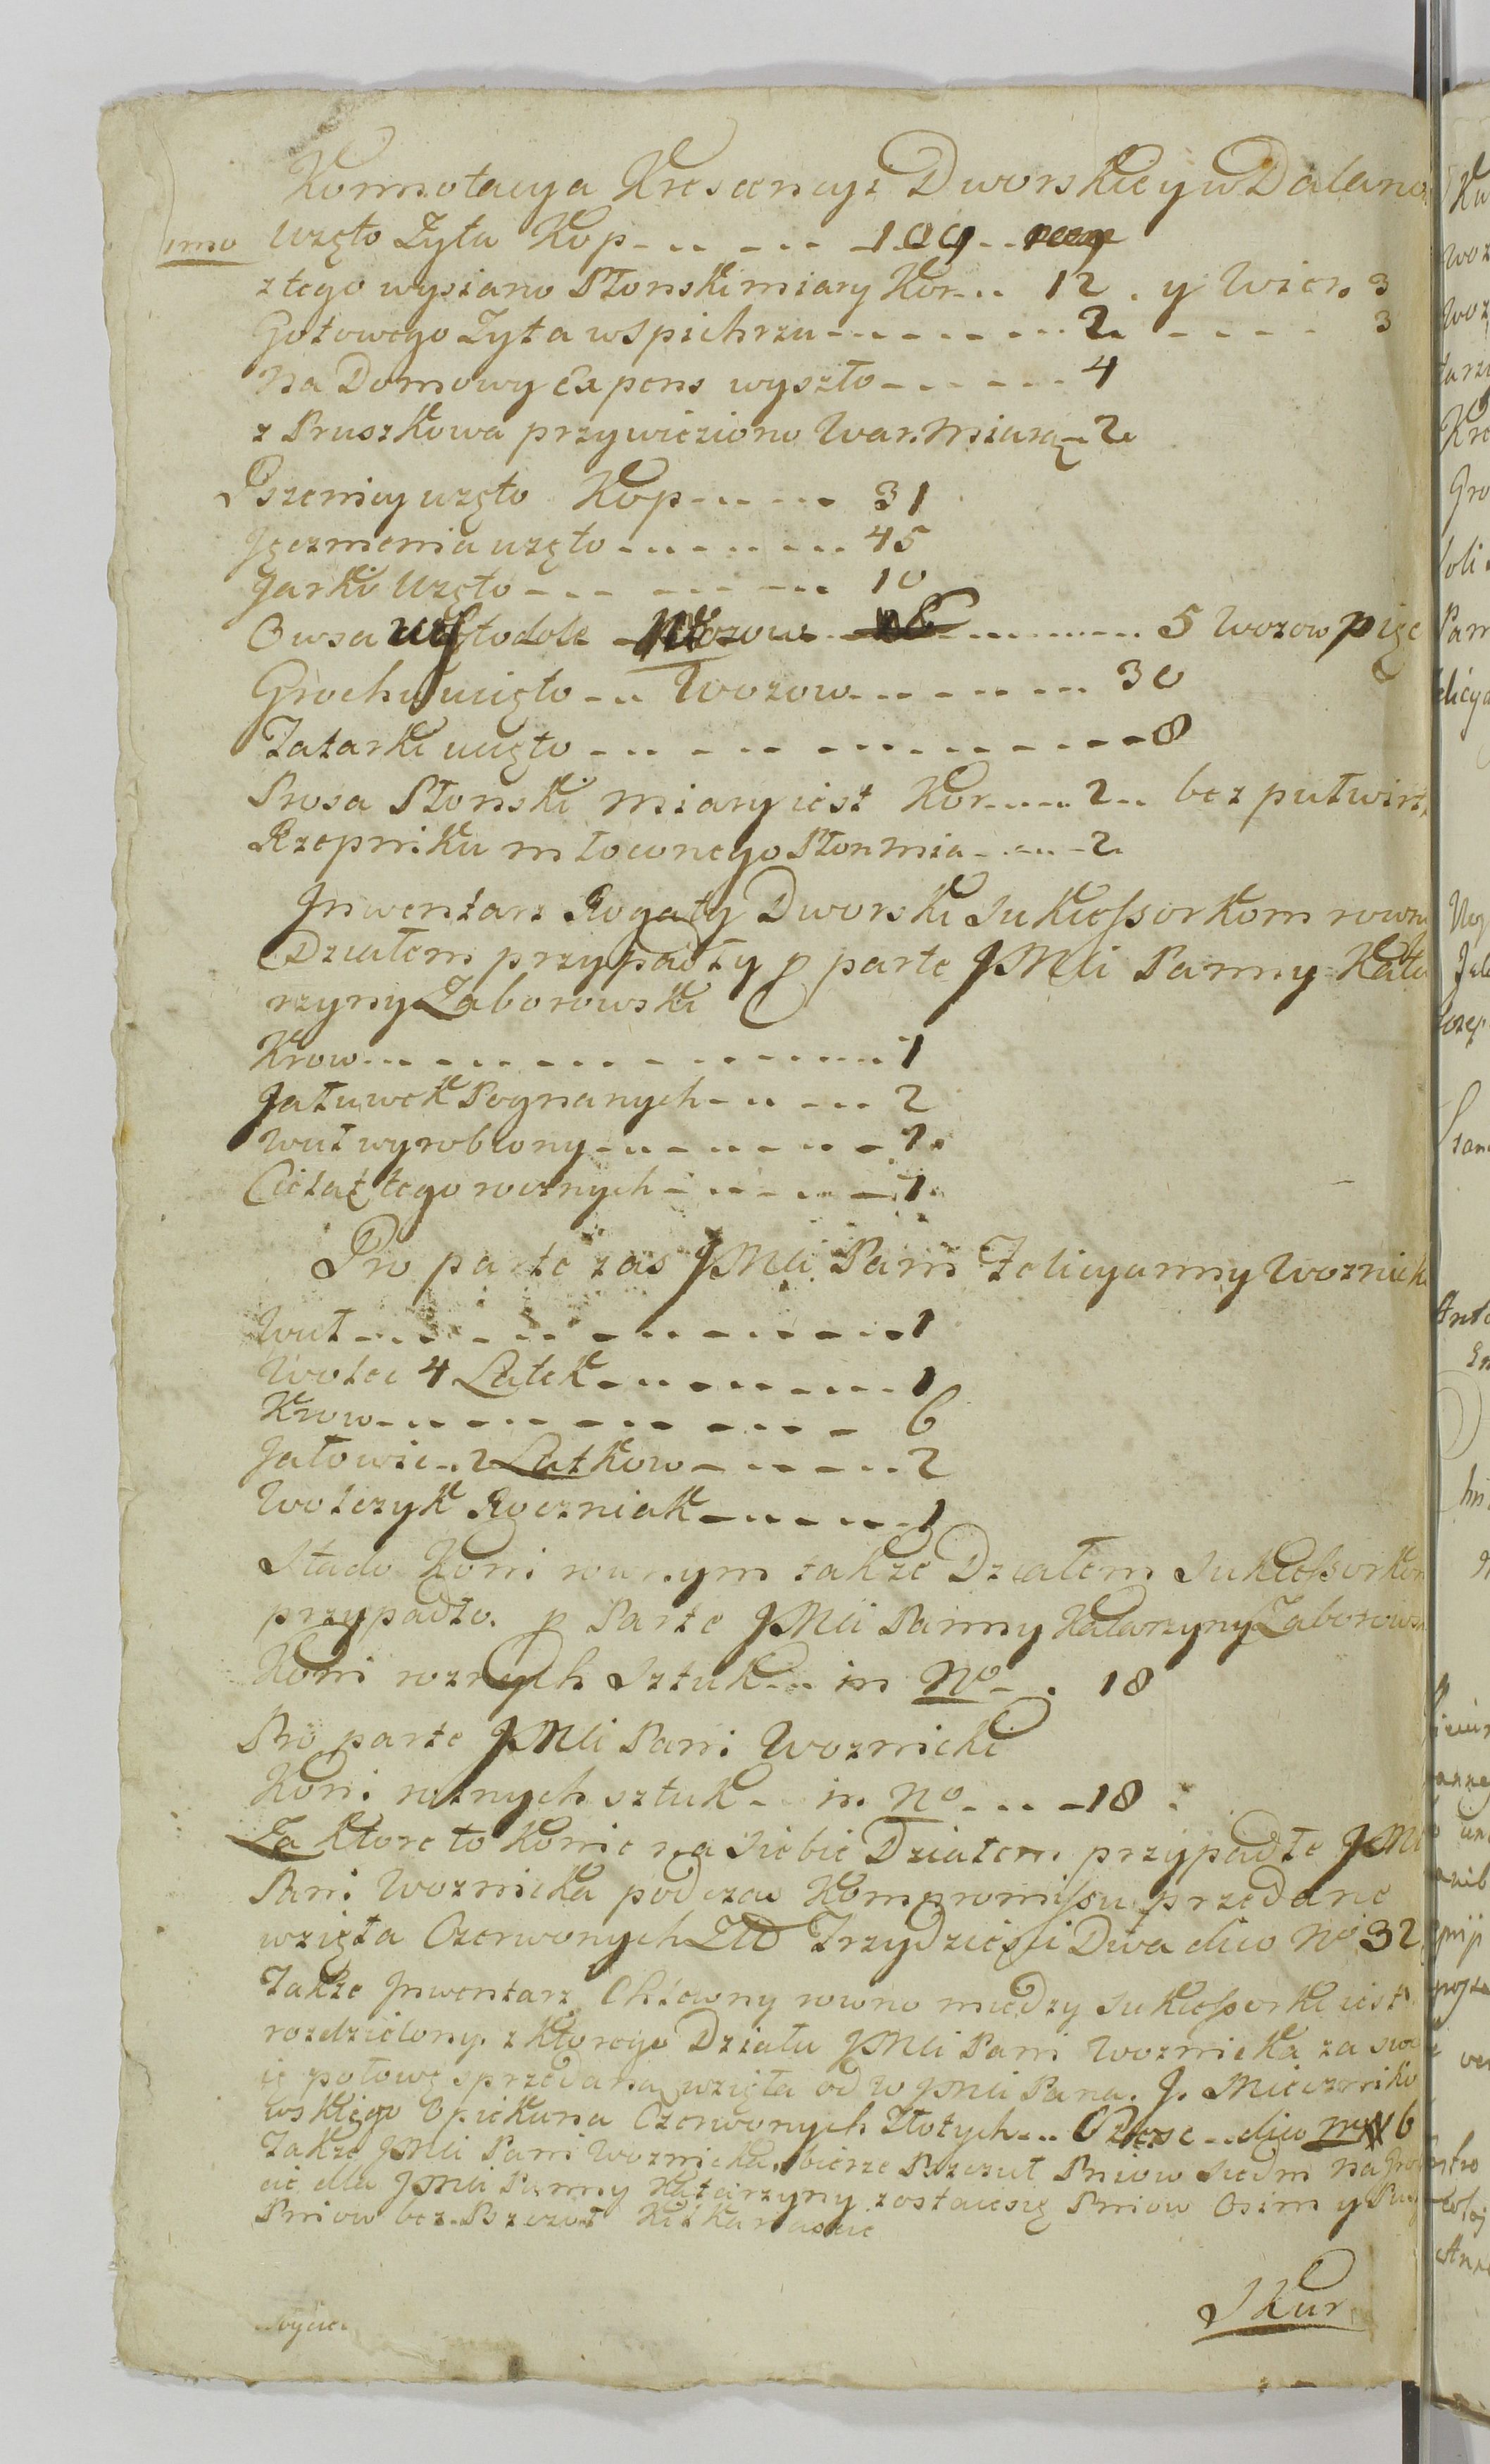 Konnotacya Krescencyi Dworskiey w Dalano
imo Uzęto Zyta Kop 109
z tego wysiano Płonski miary Kor 12 . y Wier. 3
Gotowego Zyta w Spichrzu 2 3
Na Domowy Expens wyszło 4
z Pruszkowa przywieziono War. Miarą 2
Pszenicy uzęto Kop 31
Jęczmienia uzęto 45
Jarki Uzęto 10
Owsa 5 Wozow pięc
Grochu ucięto Wozow 30
Tatarki ucięto 8
Prosa Płonski miary iest Kor 2 bez putwirt
Rzepniku młoconego Płon mia 2
Inwentarz Rogaty Dworski Sukcessorkom rown
Działem przypadły p parte JMCi Panny Kata
rzyny Zaborowski
Krow 1
Jałuwek Pognanych 2
Wuł wyrobiony 1
Cieląt tego rocznych 1
Pro parte zas JMCi Pani Felicyanny Woznick
Wuł 1
Wołec 4 Latek 1
Krow 6
Jałowic 2 Latkow 2
Wołczyk Roczniak 1
Stado Koni rownym także Działem Sukcessorkom
przypadło. p Parte JMCi Panny Katarzyny Zaborows
Koni roznych Sztuk in No 18
Pro parte JMCi Pani Woznicki
Koni roznych sztuk in No 18
Za ktore to Konie na siebie Działem przypadłe JMC
Pani Woznicka podczas Kompromissu przedane
wzięła Czerwonych Zło Trzydziesci Dwa dico No 32
Także Inwentarz Chlewny rowno między Sukcessorki iest
rozdzielony. z ktorego Działu JMCi Pani Woznicka za swo
ię połowę sprzedaną wzięła od W JMCi Pana. J. Miecznikо
wskiego Opiekuna Czerwonych Złotych Szesc dico No 6
Także JMCi Pani Woznicka bierze Pszczuł Pniow Siedm na
cie dla JMCi Panny Katarzyny zostaie się Pniow Osim y
Pniow bez Pszczuł Kilkanascie
Skur